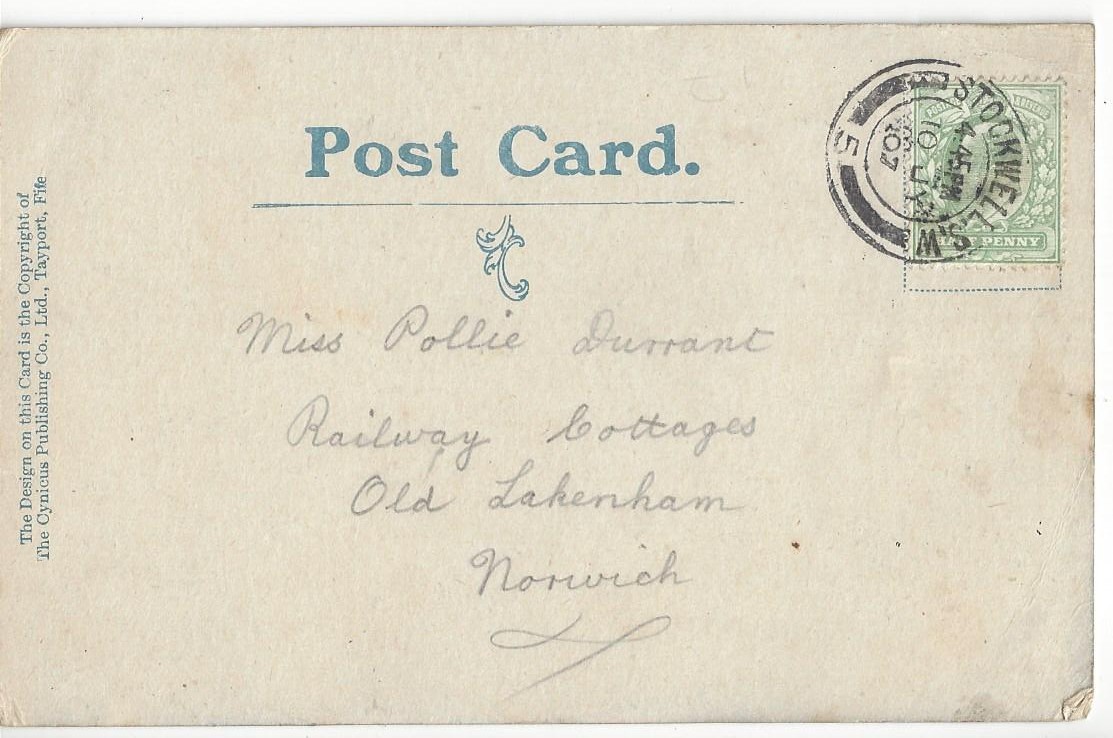 Post Card.
The Design on this Card is the Copyright of
The Cynicus Publishing Co., Ltd., Tayport, Fife
STOCKWELL S.W
4.45PM
10
07
5
HALF PENNY
Miss Pollie Durrant
Railway Cottages
Old Lakenham
Norwich